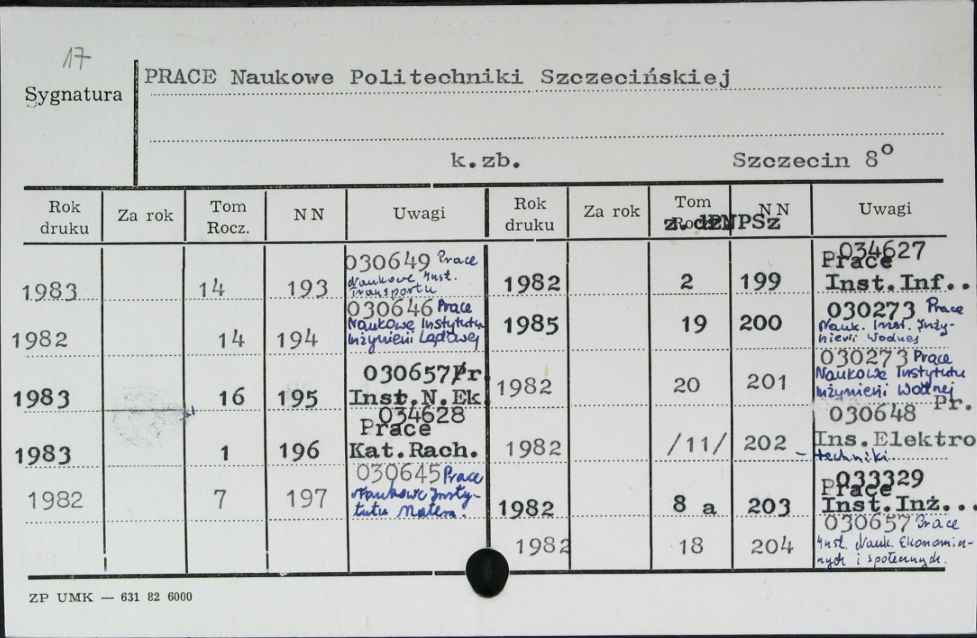 17
Sygnatura
PRACE Naukowe Politechniki Szczecińskiej
k.zb. Szczecin 8°
Rok druku Za rok Tom Rocz. NN Uwagi
1983 14 193 030649 Prace
Naukowe Inst.
Transportu
1982 14 194 030646 Prace
Naukowe Instytutu
Inżynierii Lądowej
1983 16 195 030657 Pr.
Inst.N.Ek
1983 1 196 034628
Prace
Kat.Rach.
1982 7 197 030645 Prace
Naukowe Insty-
tutu Matem.
Rok druku Za rok Tom Rocz. NN Uwagi
z. dz. PNPSz
1982 2 199 034627
Prace
Inst.Inf..
1985 19 200 030273 Prace
Nauk. Inst. Inży-
nierii Wodnej
1982 20 201 030273 Prace
Naukowe Instytutu
Inżynierii Wodnej
1982 /11/ 202 030648 Pr.
Ins.Elektro
techniki
1982 8 a 203 033329
Prace
Inst.Inż...
1982 18 204 030657 Prace
Inst. Nauk. Ekonomicz-
nych i społecznych.
ZP UMK — 631 82 6000